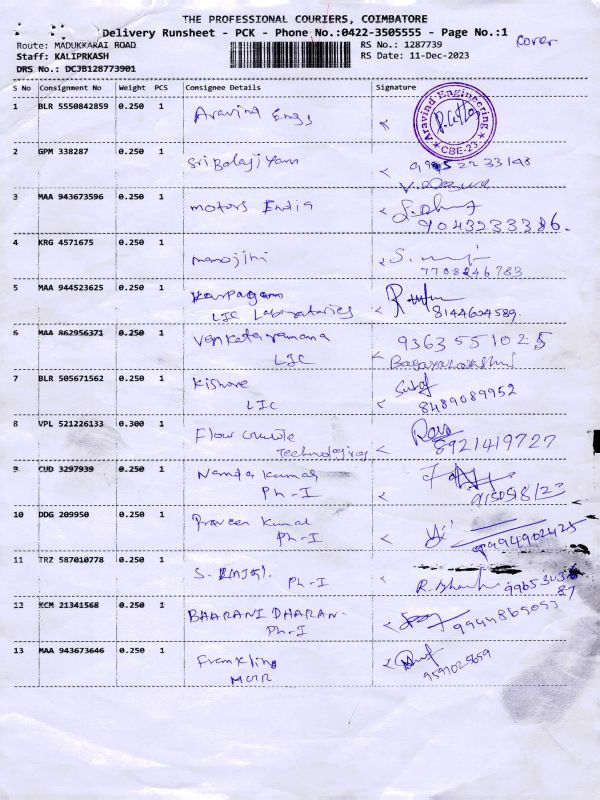 THE PROFESSIONAL COURIERS, COIMBATORE
Delivery Runsheet - PCK - Phone No.:0422-3505555 - Page No.:1
Route: MADUKKARAI ROAD RS No.: 1287739 cover
Staff: KALIPRKASH RS Date: 11-Dec-2023
DRS No.: DCJB128773901
S No Consignment No Weight PCS Consignee Details Signature
1 BLR 5550842859 0.250 1 Aravind Engg
Aravind Engineering
CBE-23
2 GPM 338287 0.250 1 Sri Balaji Yarn
3 MAA 943673596 0.250 1 motors India
9043233386.
4 KRG 4571675 0.250 1
7708246783
5 MAA 944523625 0.250 1 Karpagam
LIC Laboratories 8144604589.
6 MAA 862956371 0.250 1 Venkataramana 9363551025
LIC
7 BLR 505671562 0.250 1 Kishore
LIC 8489089952
8 VPL 521226133 0.300 1 Flow
Technologies 8921419727
9 CUD 3297939 0.250 1 Kumar
Ph-I
10 DDG 209950 0.250 1 Praveen Kumar
Ph-I 9994902425
11 TRZ 587010778 0.250 1 S.
Ph-I
12 KCM 21341568 0.250 1 BHARANI DHARAN.
Ph-I
13 MAA 943673646 0.250 1 Frankling